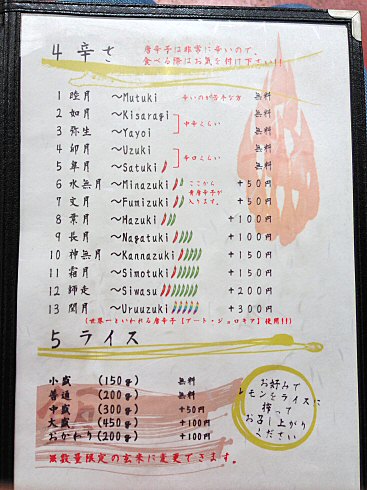 4 辛さ
唐辛子は非常に辛いので、
食べる際はお気を付け下さい!!
1 睦月 〜Mutuki 辛いのが苦手な方 無料
2 如月 〜Kisaragi 無料
中辛くらい
3 弥生 〜Yayoi 無料
4 卯月 〜Uzuki 無料
辛口くらい
5 皐月 〜Satuki 無料
6 水無月 〜Minazuki +50円
ここから
青唐辛子が
入ります。
7 文月 〜Fumizuki +50円
8 葉月 〜Hazuki +100円
9 長月 〜Nagatuki +100円
10 神無月 〜Kannazuki +150円
11 霜月 〜Simotuki +150円
12 師走 〜Siwasu +200円
13 閏月 〜Uruuzuki +300円
(世界一といわれる唐辛子【ブート・ジョロキア】使用!!)
5 ライス
小盛 (150g) 無料
普通 (200g) 無料
中盛 (300g) +50円
大盛 (450g) +100円
おかわり(200g) +100円
※数量限定の玄米に変更できます。
お好みで
レモンをライスに
搾って
お召し上がり
ください